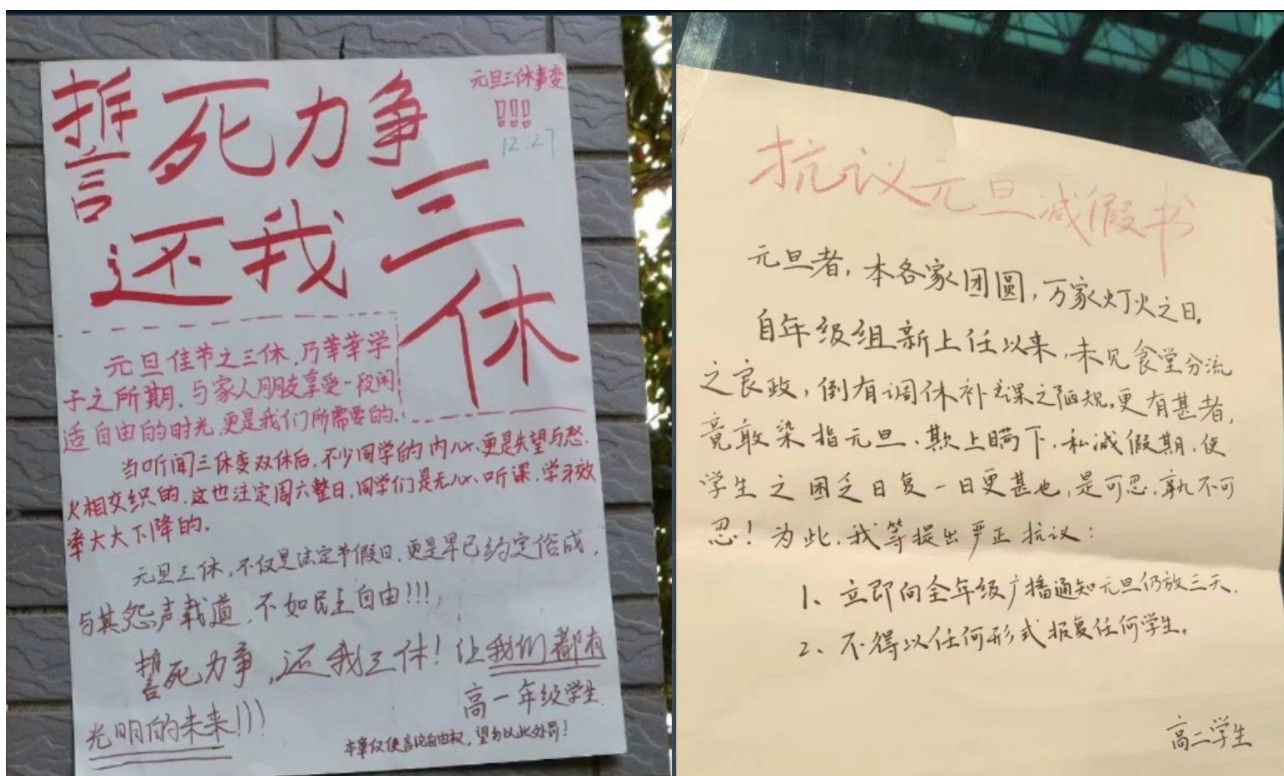 元旦三休事变
!!!
12.27
誓死力争
还我三休
元旦佳节之三休,乃莘莘学
子之所期,与家人朋友享受一段闲
适自由的时光,更是我们所需要的.
当听闻三休变双休后,不少同学的内心,更是失望与怒
火相交织的.这也注定周六整日,同学们是无心听课,学习效
率大大下降的.
元旦三休,不仅是法定节假日,更是早已约定俗成,
与其怨声载道,不如民主自由!!!
誓死力争,还我三休!让我们都有
光明的未来!!!
高一年级学生
本章仅使言论自由权,望勿以此处罚!
抗议元旦减假书
元旦者,本各家团圆,万家灯火之日.
自年级组新上任以来,未见食堂分流
之良政,倒有调休补课之陋规.更有甚者,
竟敢染指元旦,欺上瞒下,私减假期,使
学生之困乏日复一日更甚也,是可忍,孰不可
忍!为此,我等提出严正抗议:
1、立即向全年级广播通知元旦仍放三天.
2、不得以任何形式报复任何学生。
高二学生